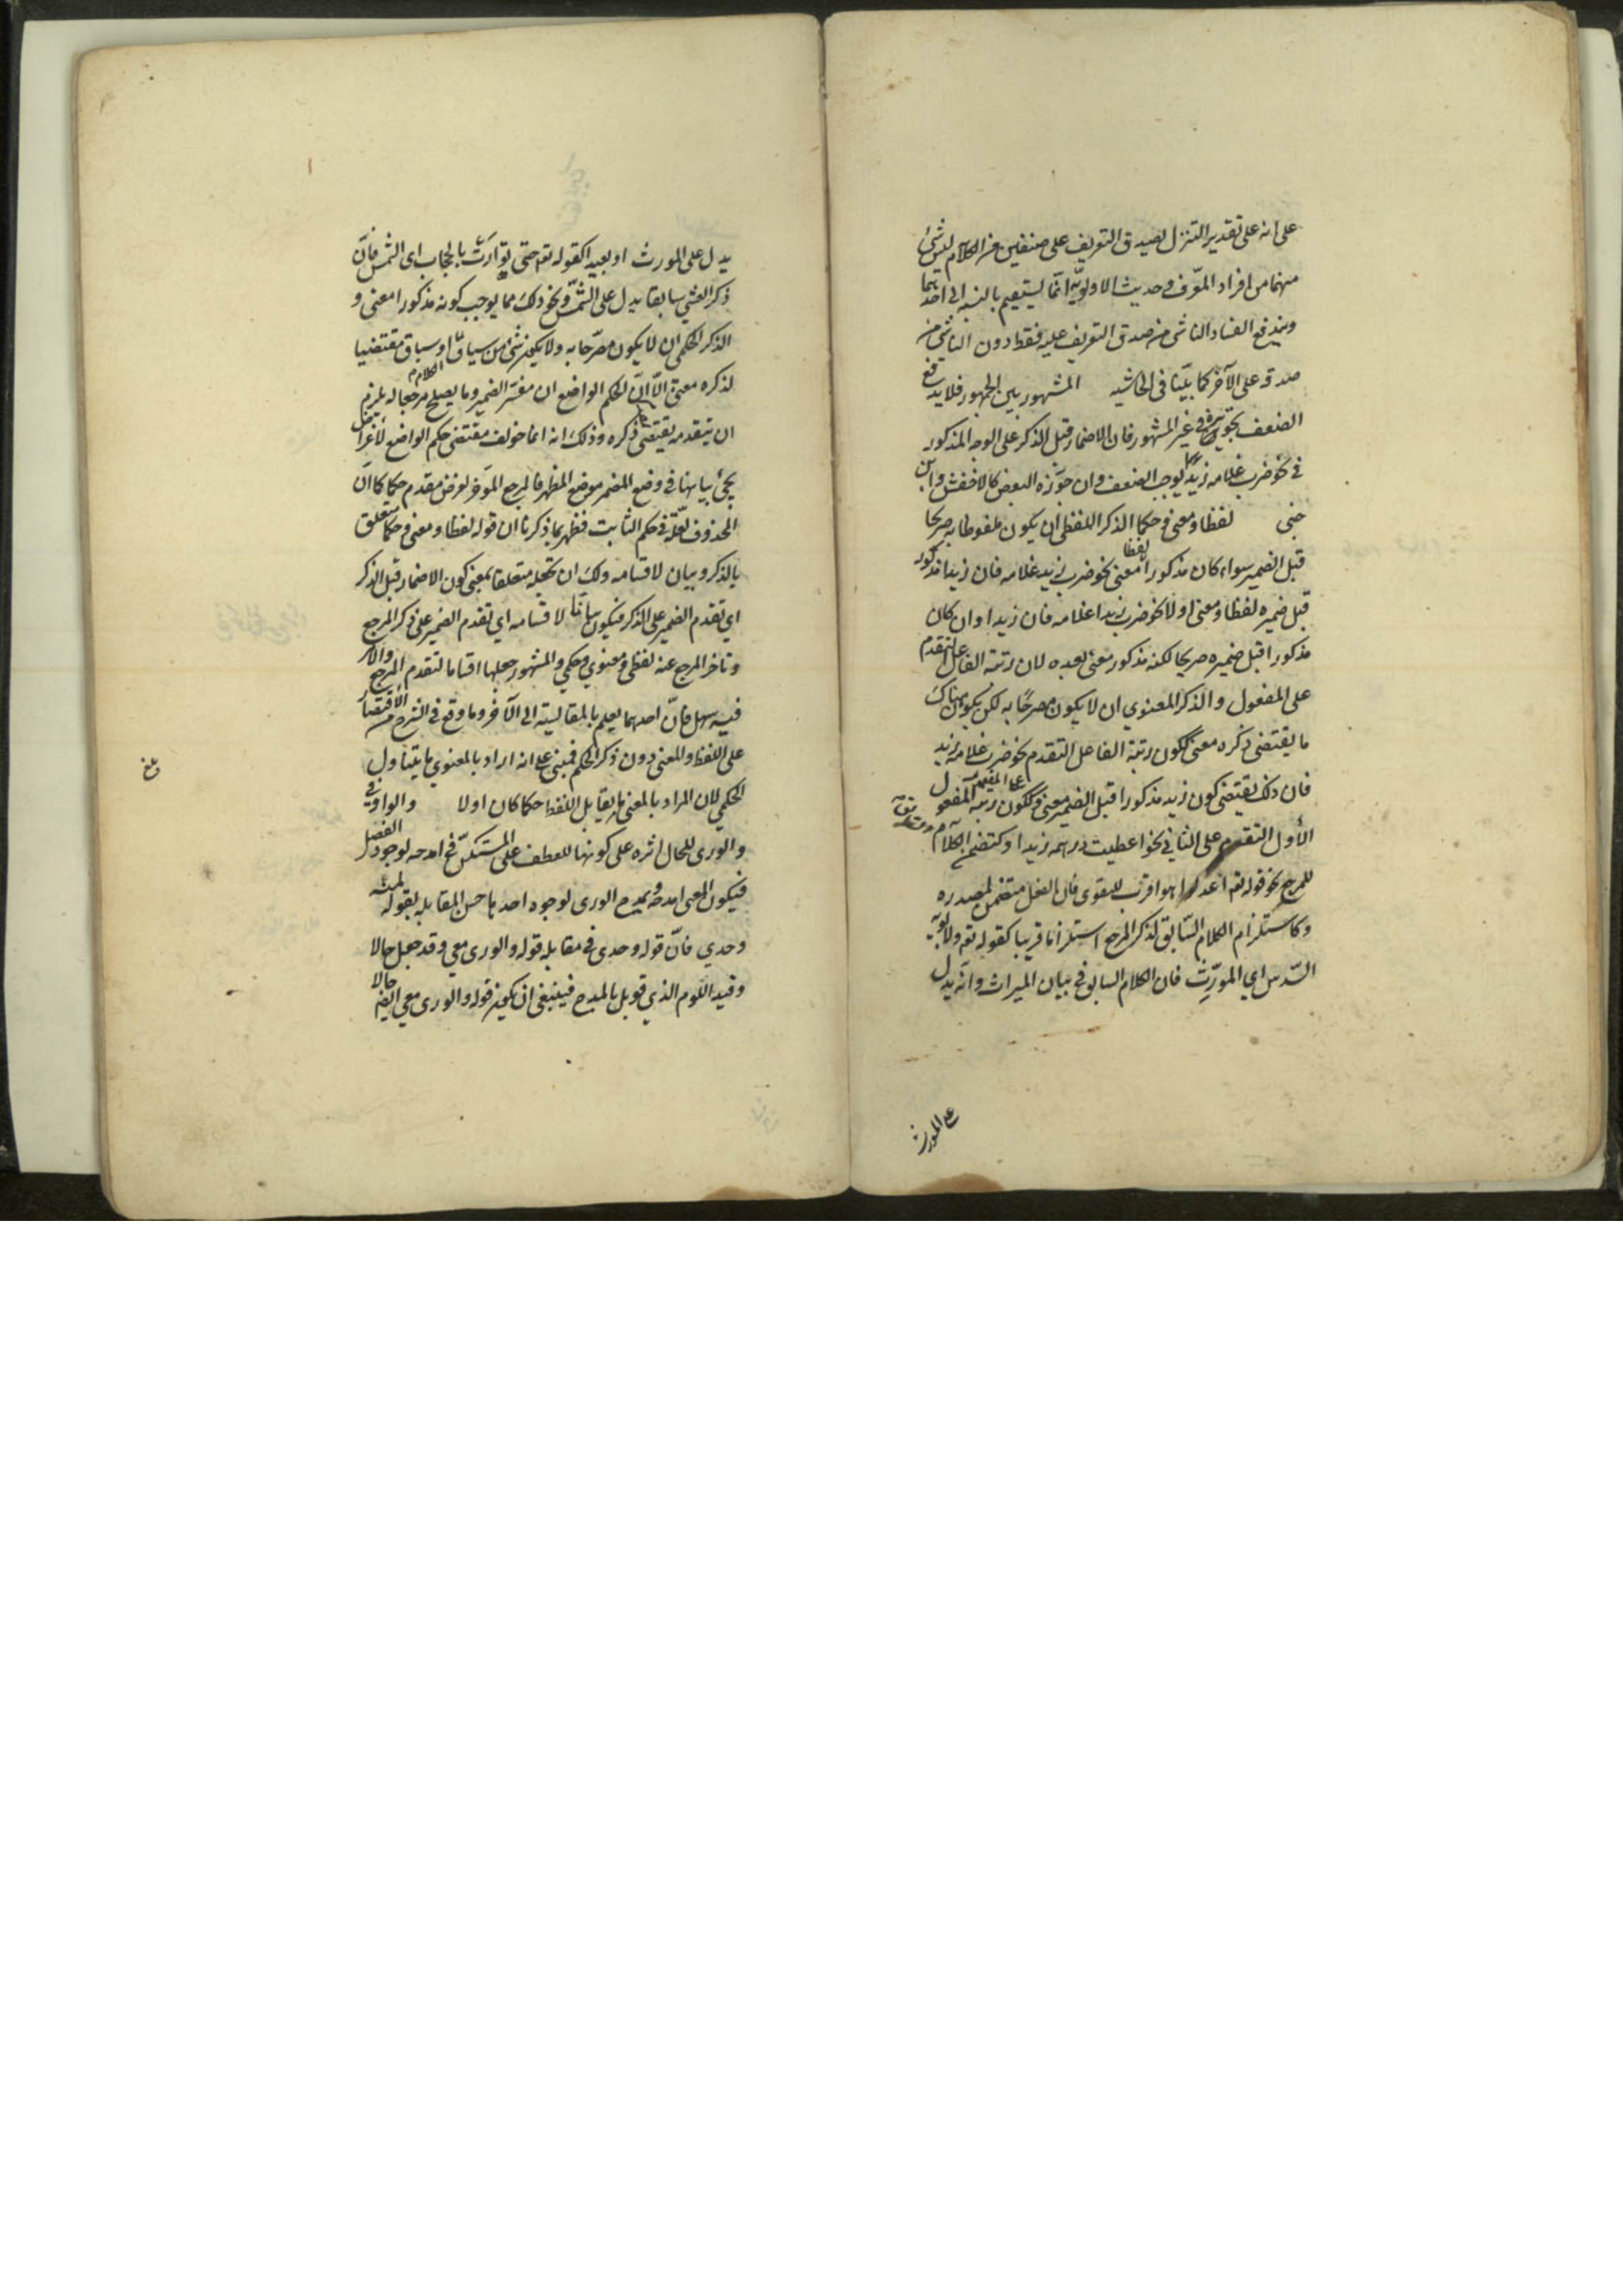 على انه على تقدير التنزل لصدق التعريف على صنفين من الكلام ليس شئ
منهما من افراد المعرف وحديث الاولوية انما يستقيم بالنسبة الى احديهما
ويندفع الفساد الناشى من صدق التعريف عليه فقط دون الناشى من
صدقه على الآخر كما بيّنا فى الحاشيه المشهور بين الجمهور فلا يدفع
الضعف تجويزه فى غير المشهور فان الاضمار قبل الذكر على الوجه المذكور
فى نحو ضرب غلامه زيدًا يوجب الضعف وان جوّزه البعض كالاخفش وابن
جنى لفظا ومعنى وحكما الذكر اللفظى ان يكون ملفوظا به صريحا
قبل الضمير سواء كان مذكورا لفظا معنى نحو ضرب زيد غلامه فان زيدا مذكور
قبل ضميره لفظا ومعنى او لا نحو ضرب زيدا غلامه فان زيدا وان كان
مذكورا قبل ضميره صريحا لكنه مذكور معنى بعده لان رتبة الفاعل التقدم
على المفعول والذكر المعنوي ان لا يكون مصرحًا به لكن يكون هناك
ما يقتضى ذكره معنى ككون رتبة الفاعل التقدم نحو ضرب غلامه زيد
فان ذلك يقتضى كون زيد مذكورا قبل الضمير معنى وككون رتبة المفعول
الأول التقدم على الثانى نحو اعطيت درهمه زيدا وكتضمن الكلام
للمرجع نحو قوله تعم اعدلوا هو اقرب للتقوى فان الفعل متضمن لمصدره
وكاستلزام الكلام السّابق لذكر المرجع استلزاما قريبا كقوله تعم ولابويه
السّدس اي المورّث فان الكلام السابق فى بيان الميراث وانه يدل
على المورث
يدل على المورث او بعيدا كقوله تعم حتى توارت بالحجاب اى الشمس فانّ
ذكر العشي سابقا يدل على الشمس ونحو ذلك مما يوجب كونه مذكورا معنى و
الذكر الحكمى ان لا يكون مصرّحا به ولا يكون شئ من سياق او سباق مقتضيا
لذكره معنى الّا انّ حكم الواضع ان مفسّر الضمير وما يصلح مرجعا له يلزم
ان يتقدمه يقتضى ذكره وذلك انه انما خولف مقتضى حكم الواضع لأغراض
يجئ بيانها فى وضع المضمر موضع المظهر فالمرجع المؤخر لغرض مقدم حكما كما انّ
المحذوف لعلّة فى حكم الثابت فظهر بما ذكرنا ان قوله لفظا ومعنى وحكما يتعلق
بالذكر وبيان لاقسامه ولك ان تجعله متعلقا بمعنى كون الاضمار قبل الذكر
اي تقدم الضمير على الذكر فيكون بيانا لاقسامه اي تقدم الضمير على ذكر المرجع
وتاخر المرجع عنه لفظى ومعنوي وحكمي والمشهور جعلها اقساما لتقدم المرجع والامر
فيه سهل فانّ احدهما يعلم بالمقايسة الى الآخر وما وقع فى الشرح من الاقتصار
على اللفظ والمعنى دون ذكر الحكم فمبنى على انه اراد بالمعنوي ما يتناول
الحكمي لان المراد بالمعنى ما يقابل اللفظ حكما كان اولا والواو فى
والورى للحال اثره على كونها للعطف على المستكنّ فى امدحه لوجود الفصل
فيكون المعنى امدحه ويمدحه الورى لوجوه احدها حسن المقابله بقوله لمته
وحدي فانّ قوله وحدى فى مقابله قوله والورى معي وقد جعل حالا
وقيد اللوم الذي قوبل بالمدح فينبغى ان يكون قوله والورى معي ايضا حالا